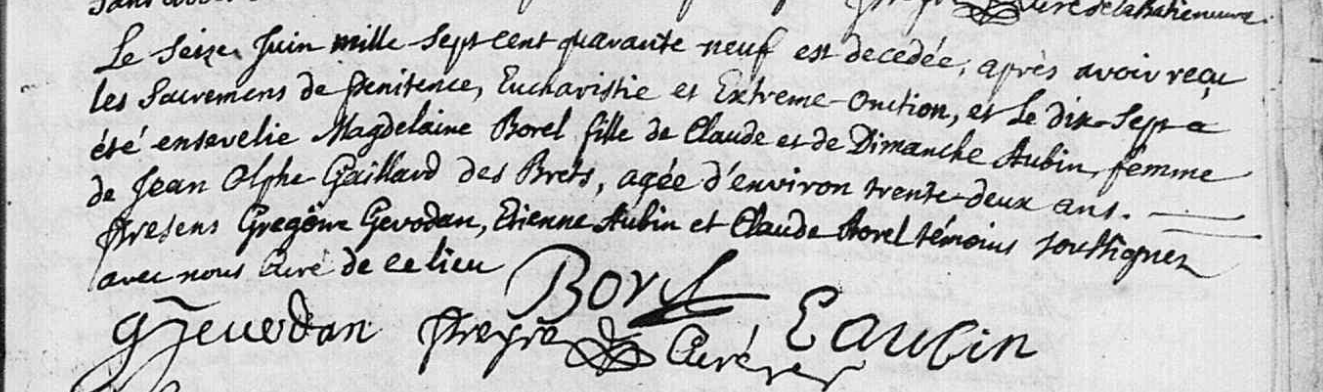 Curé de la Batieneuve.
Le Seize Juin mille Sept cent quarante neuf est decedée, après avoir reçu
les Sacremens de Penitence, Eucharistie et Extreme-Onction, et Le dix-Sept a
été ensevelie Magdelaine Borel fille de Claude et de Dimanche Aubin, femme
de Jean Olphe-Gaillard des Brets, agée d'environ trente-deux ans.
Presens Gregoire Gevodan, Etienne Aubin et Claude Borel témoins soussignez
avec nous Curé de ce lieu
Borel
gjevodan Curé Eaubin